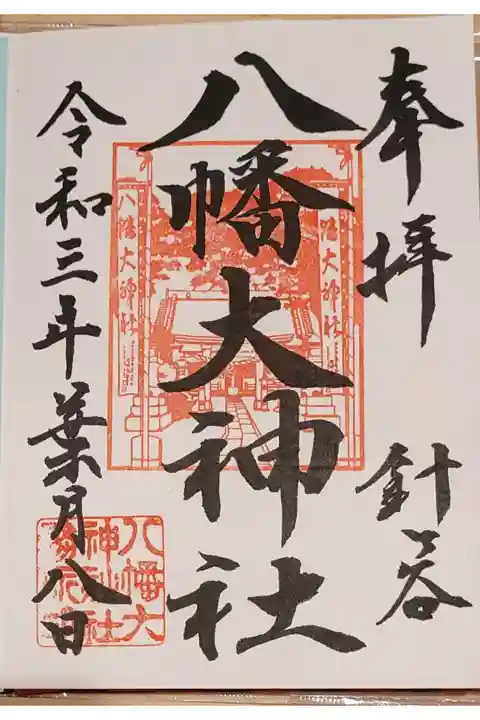 奉拝
針ヶ谷
八幡大神社
令和三年葉月八日
八幡大神社
幡大神社
八幡大
神社